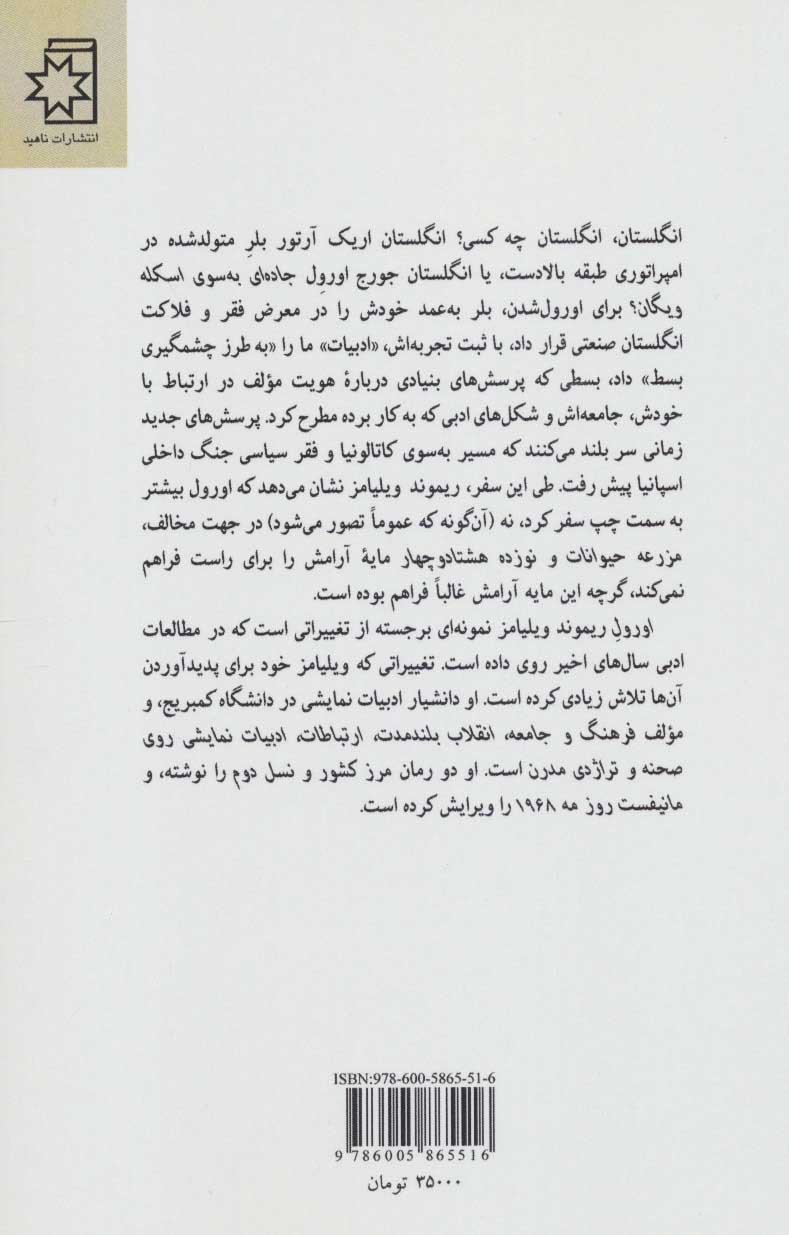 انتشارات ناهید
انگلستان، انگلستان چه کسی؟ انگلستان اریک آرتور بلرِ متولدشده در
امپراتوری طبقه بالادست، یا انگلستان جورج اورولِ جاده‌ای به‌سوی اسکله
ویگان؟ برای اورول‌شدن، بلر به‌عمد خودش را در معرض فقر و فلاکت
انگلستان صنعتی قرار داد، با ثبت تجربه‌اش، «ادبیات» ما را «به طرز چشمگیری
بسط» داد، بسطی که پرسش‌های بنیادی دربارهٔ هویت مؤلف در ارتباط با
خودش، جامعه‌اش و شکل‌های ادبی که به کار برده مطرح کرد. پرسش‌های جدید
زمانی سر بلند می‌کنند که مسیر به‌سوی کاتالونیا و فقر سیاسی جنگ داخلی
اسپانیا پیش رفت. طی این سفر، ریموند ویلیامز نشان می‌دهد که اورول بیشتر
به سمت چپ سفر کرد، نه (آن‌گونه که عموماً تصور می‌شود) در جهت مخالف،
مزرعه حیوانات و نوزده هشتادوچهار مایهٔ آرامش را برای راست فراهم
نمی‌کند، گرچه این مایه آرامش غالباً فراهم بوده است.
اورولِ ریموند ویلیامز نمونه‌ای برجسته از تغییراتی است که در مطالعات
ادبی سال‌های اخیر روی داده است. تغییراتی که ویلیامز خود برای پدیدآوردن
آن‌ها تلاش زیادی کرده است. او دانشیار ادبیات نمایشی در دانشگاه کمبریج، و
مؤلف فرهنگ و جامعه، انقلاب بلندمدت، ارتباطات، ادبیات نمایشی روی
صحنه و تراژدی مدرن است. او دو رمان مرز کشور و نسل دوم را نوشته، و
مانیفست روز مه ۱۹۶۸ را ویرایش کرده است.
ISBN:978-600-5865-51-6
9 786005 865516
۳۵۰۰۰ تومان